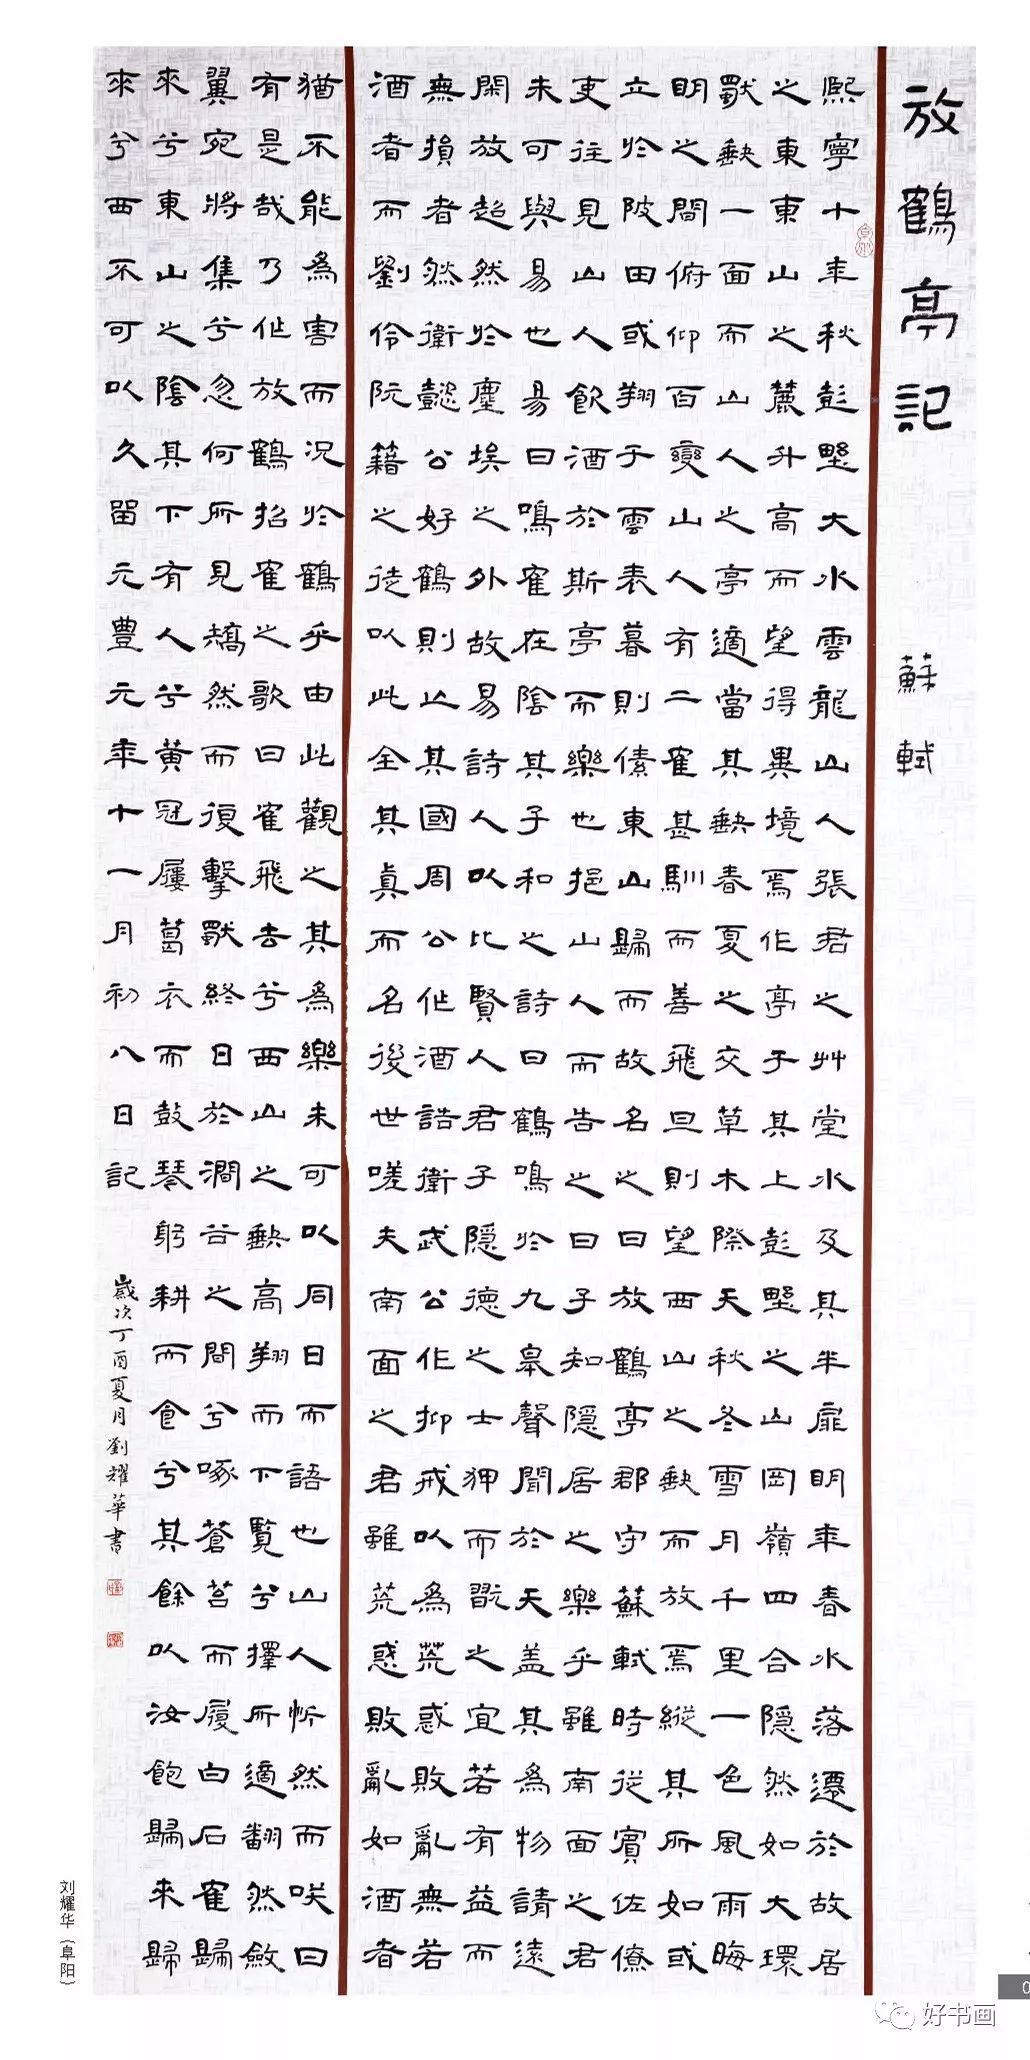 放鶴亭記 蘇軾
熙寧十年秋彭城大水雲龍山人張君之艸堂水及其半扉明年春水落遷於故居
之東東山之麓升高而望得異境焉作亭于其上彭城之山岡嶺四合隱然如大環
獸缺一面而山人之亭適當其缺春夏之交草木際天秋冬雪月千里一色風雨晦
明之間俯仰百變山人有二寉甚馴而善飛旦則望西山之缺而放焉縱其所如或
立於陂田或翔于雲表暮則傃東山歸而故名之曰放鶴亭郡守蘇軾時從賓佐僚
吏往見山人飲酒於斯亭而樂也挹山人而告之曰子知隱居之樂乎雖南面之君
未可與易也易曰鳴寉在陰其子和之詩曰鶴鳴於九皋聲聞於天蓋其為物請遠
閑放超然於塵埃之外故易詩人以比賢人君子隱德之士狎而翫之宜若有益而
無損者然衛懿公好鶴則亡其國周公作酒誥衛武公作抑戒以為荒惑敗亂無若
酒者而劉伶阮籍之徒以此全其真而名後世嗟夫南面之君雖荒惑敗亂如酒者
猶不能為害而況於鶴乎由此觀之其為樂未可以同日而語也山人忻然而咲曰
有是哉乃作放鶴招寉之歌曰寉飛去兮西山之缺高翔而下覽兮擇所適翻然斂
翼宛將集兮忽何所見矯然而復擊獸終日於澗谷之間兮啄蒼苔而履白石寉歸
來兮東山之陰其下有人兮黃冠屨葛衣而鼓琴躬耕而食兮其餘以汝飽歸來歸
來兮西不可以久留元豐元年十一月初八日記
歲次丁酉夏月劉耀華書
刘耀华（阜阳）
好书画